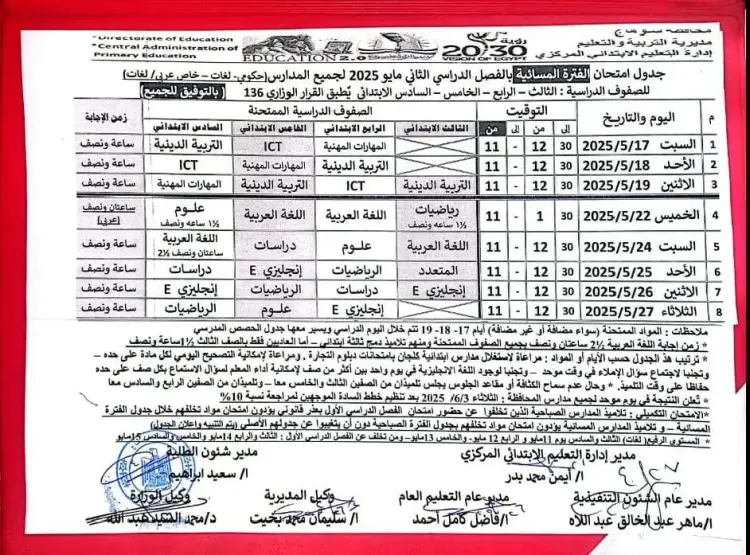 محافظة سوهاج
مديرية التربية والتعليم
إدارة التعليم الابتدائي المركزي
رؤية
2030
VISION OF EGYPT
EDUCATION 2.0
"Directorate of Education
"Central Administration of
Primary Education
جدول امتحان الفترة المسائية بالفصل الدراسي الثاني مايو 2025 لجميع المدارس (حكومي- لغات - خاص عربي/ لغات)
للصفوف الدراسية : الثالث - الرابع - الخامس - السادس الابتدائي يُطبق القرار الوزاري 136 (بالتوفيق للجميع)
م اليوم والتاريخ التوقيت الصفوف الدراسية الممتحنة زمن الإجابة
إلى من إلى من الثالث الابتدائي الرابع الابتدائي الخامس الابتدائي السادس الابتدائي
1 السبت 2025/5/17 30 12 - 11 المهارات المهنية ICT التربية الدينية ساعة ونصف
2 الأحد 2025/5/18 30 12 - 11 التربية الدينية المهارات المهنية ICT ساعة ونصف
3 الاثنين 2025/5/19 30 12 - 11 التربية الدينية ICT التربية الدينية المهارات المهنية ساعة ونصف
4 الخميس 2025/5/22 30 1 - 11 رياضيات 1½ ساعه ونصف اللغة العربية اللغة العربية علوم 1½ ساعه ونصف ساعتان ونصف (عربي)
5 السبت 2025/5/24 30 12 - 11 اللغة العربية علوم دراسات اللغة العربية ساعتان ونصف 2½ ساعة ونصف
6 الأحد 2025/5/25 30 12 - 11 المتعدد الرياضيات إنجليزي E دراسات ساعة ونصف
7 الاثنين 2025/5/26 30 12 - 11 إنجليزي E دراسات الرياضيات إنجليزي E ساعة ونصف
8 الثلاثاء 2025/5/27 30 12 - 11 إنجليزي E علوم الرياضيات ساعة ونصف
ملاحظات : المواد الممتحنة (سواء مضافة أو غير مضافة) أيام 17- 18- 19 تتم خلال اليوم الدراسي ويسير معها جدول الحصص المدرسي
* زمن إجابة اللغة العربية 2½ ساعتان ونصف بجميع الصفوف الممتحنة ومنهم تلاميذ دمج ثالثة ابتدائي - أما العاديين فقط بالصف الثالث 1½ساعة ونصف
* ترتيب هذا الجدول حسب الأيام أو المواد : مراعاة لاستغلال مدارس ابتدائية كلجان بامتحانات دبلوم التجارة . ومراعاة لإمكانية التصحيح اليومي لكل مادة على حده –
وتجنبا لاجتماع سؤال الإملاء في وقت موحد – وتجنبا لوجود اللغة الانجليزية في يوم واحد بين أكثر من صف لإمكانية أداء المعلم لسؤال الاستماع بكل صف على حده
حفاظا على وقت التلميذ. * وحال عدم سماح الكثافة أو مقاعد الجلوس يجلس تلميذان من الصفين الثالث والخامس معا - وتلميذان من الصفين الرابع والسادس معا
* تُعلن النتيجة في يوم موحد لجميع مدارس المحافظة : الثلاثاء 6/3/ 2025 بعد تنظيم خطط السادة الموجهين لمراجعة نسبة 10%
*الامتحان التكميلي : تلاميذ المدارس الصباحية الذين تخلفوا عن حضور امتحان الفصل الدراسي الأول بعذر قانوني يؤدون امتحان مواد تخلفهم خلال جدول الفترة
المسائية – و تلاميذ المدارس المسائية يؤدون امتحان مواد تخلفهم بجدول الفترة الصباحية دون أن يتغيبوا عن جدولهم الأصلي (يتم التنبيه وإعلان الجدول)
* المستوى الرفيع( لغات) الثالث والسادس يوم 11مايو و الرابع 12 مايو- والخامس 13مايو– ومن تخلف عن الفصل الدراسي الأول : الثالث والرابع 14مايو والخامس والسادس 15مايو
مدير إدارة التعليم الابتدائي المركزي
أ/ أيمن محمد بدر
مدير شئون الطلبة
أ/ سعيد ابراهيم
مدير عام الشئون التنفيذية
أ/ماهر عبد الخالق عبد اللاه
مدير عام التعليم العام
أ/فاضل كامل أحمد
وكيل المديرية
أ/ سليمان محمد بخيت
وكيل الوزارة
د/محمد السيد عبد اللاه